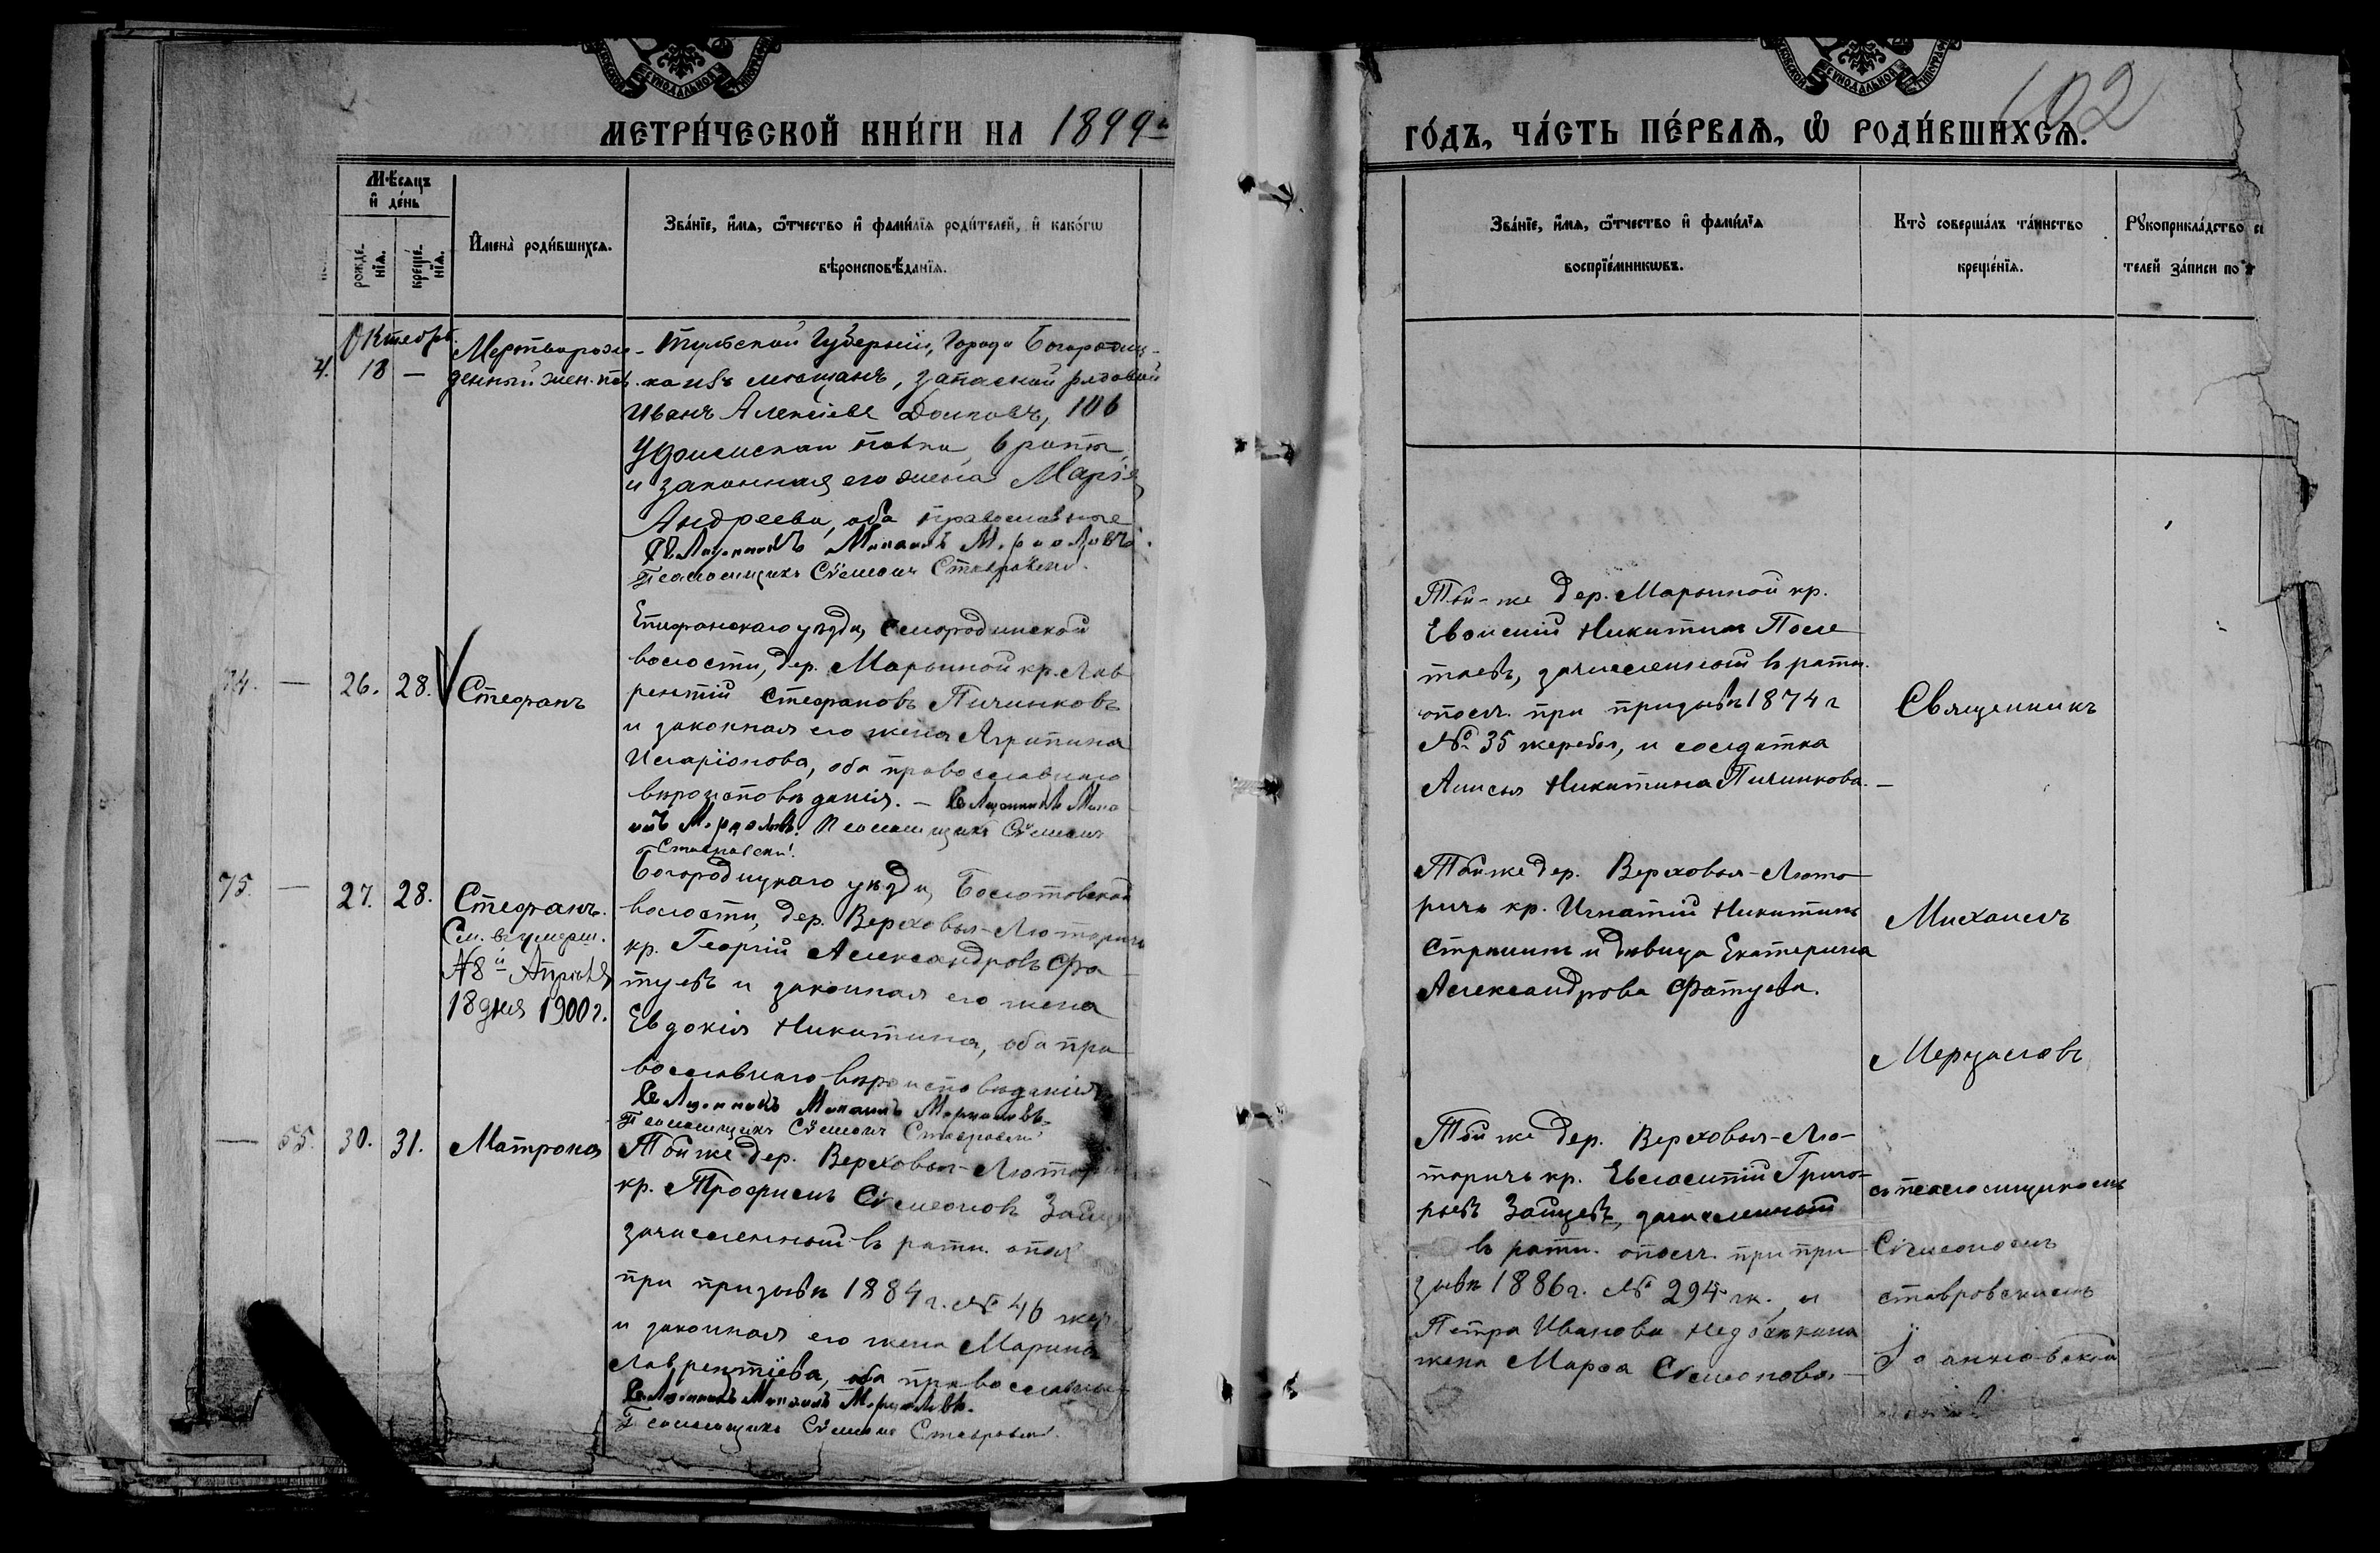 СѴНОДАЛЬНОЙ
СѴНОДАЛЬНОЙ ТИПОГРАФ
102
МЕТРИ́ЧЕСКОЙ КНИ́ГИ НА 1899
ГО́ДЪ, ЧА́СТЬ ПЕ́РВАѦ, Ѽ РОДИ́ВШИХСѦ.
Мѣсяцъ и҆ де́нь
рожде́нїя.
креще́нїя.
И҆мена̀ роди́вшихся.
Зва́нїе, и҆́мя, ѻ҆́тчество и҆ фами́лїя роди́телей, и҆ како́гѡ
вѣроисповѣ́данїя.
Зва́нїе, и҆́мя, ѻ҆́тчество и҆ фами́лїя
воспрїе́мникѡвъ.
Кто̀ соверша́лъ та́инство
креще́нїя.
Рꙋкоприкла́дство
телей за́писи по
Октября
18 —
Мертворож-
денный жен. пол.
Тульской Губерніи, Города Богородиц-
ка изъ мѣщанъ, запасной рядовой
Иванъ Алексіевъ Долговъ, 106
Уфимскаго полка, 6 роты,
и законная его жена Марія
Андреева, оба православные
Священникъ Михаилъ Мерцаловъ.
Псаломщикъ Сѵмеонъ Ставровскій.
74. — 26. 28. Стефанъ
Епифанскаго уѣзда, Смородинской
волости, дер. Марьиной кр. Лав
рентій Стефановъ Пичинковъ
и законная его жена Агрипина
Иларіонова, оба православнаго
вѣроисповѣданія. — Священникъ Миха
илъ Мерцаловъ. Псаломщикъ Сѵмеонъ
Ставровскій.
Той-же дер. Марьиной кр.
Никитин
зачисленный въ ратн.
ополч. при призывѣ 1874 г
№ 35 жеребья, и солдатка
Анисья Никитина Пичинкова. —
Священникъ
75. — 27. 28. Стефанъ.
См. въ умерш.
№ 8й Апрѣля
18 дня 1900 г.
Богородицкаго уѣзда, Болотовской
волости, дер. Верховья-Люторичь
кр. Георгій Александровъ Фа
туевъ и законная его жена
Евдокія Никитина, оба пра
вославнаго вѣроисповѣданія
Священникъ Михаилъ Мерцаловъ.
Псаломщикъ Сѵмеонъ Ставровскій
Той же дер. Верховья-Люто
ричь кр. Игнатій Никитинъ
Страшинъ и дѣвица Екатерина
Александрова Фатуева.
Михаилъ
Мерцаловъ
— 55. 30. 31. Матрона
Той же дер. Верховья-Лютор
кр. Трофимъ Сѵмеоновъ Зайц
зачисленный въ ратн. опол
при призывѣ 1884 г. № 46 жер
и законная его жена Марина
Лаврентіева, оба православные
Священникъ Михаилъ Мерцаловъ.
Псаломщикъ Сѵмеонъ Ставровскій.
Той же дер. Верховья-Лю-
торичь кр. Евлампій Григо-
рьевъ Зайцевъ, зачисленный
въ ратн. ополч. при при
зывѣ 1886 г. № 294 ж., и
Петра Иванова
жена Марѳа Сѵмеонова. —
съ псаломщикомъ
Сѵмеономъ
Ставровскимъ